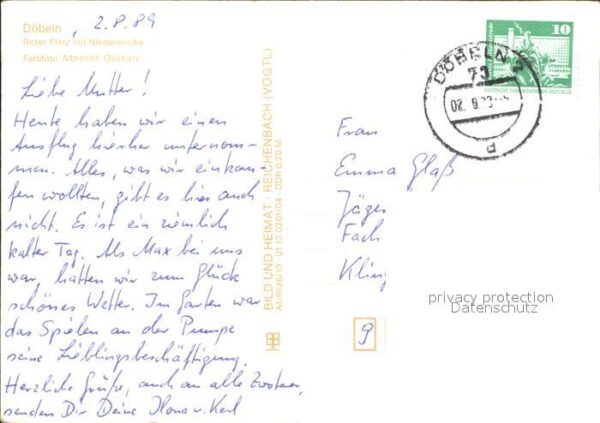 Döbeln , 2.8.89
Roter Platz mit Nikolaikirche
Farbfoto Albrecht, Oschatz
Liebe Mutter!
Heute haben wir einen
Ausflug hierher unternom-
men. Alles, was wir einkau-
fen wollten, gibt es hier auch
nicht. Es ist ein ziemlich
kalter Tag. Als Max bei uns
war, hatten wir zum Glück
schönes Wetter. Im Garten war
das Spielen an der Pumpe
seine Lieblingsbeschäftigung.
Herzliche Grüße, auch an alle
senden Dir Deine Ilona u. Karl
BILD UND HEIMAT · REICHENBACH (VOGTL)
DDR 0,20 M
10
DEUTSCHE DEMOKRATISCHE REPUBLIK
DÖBELN
73
d
Frau
Emma Glaß
Jäger
Fach
Kling
privacy protection
Datenschutz
9